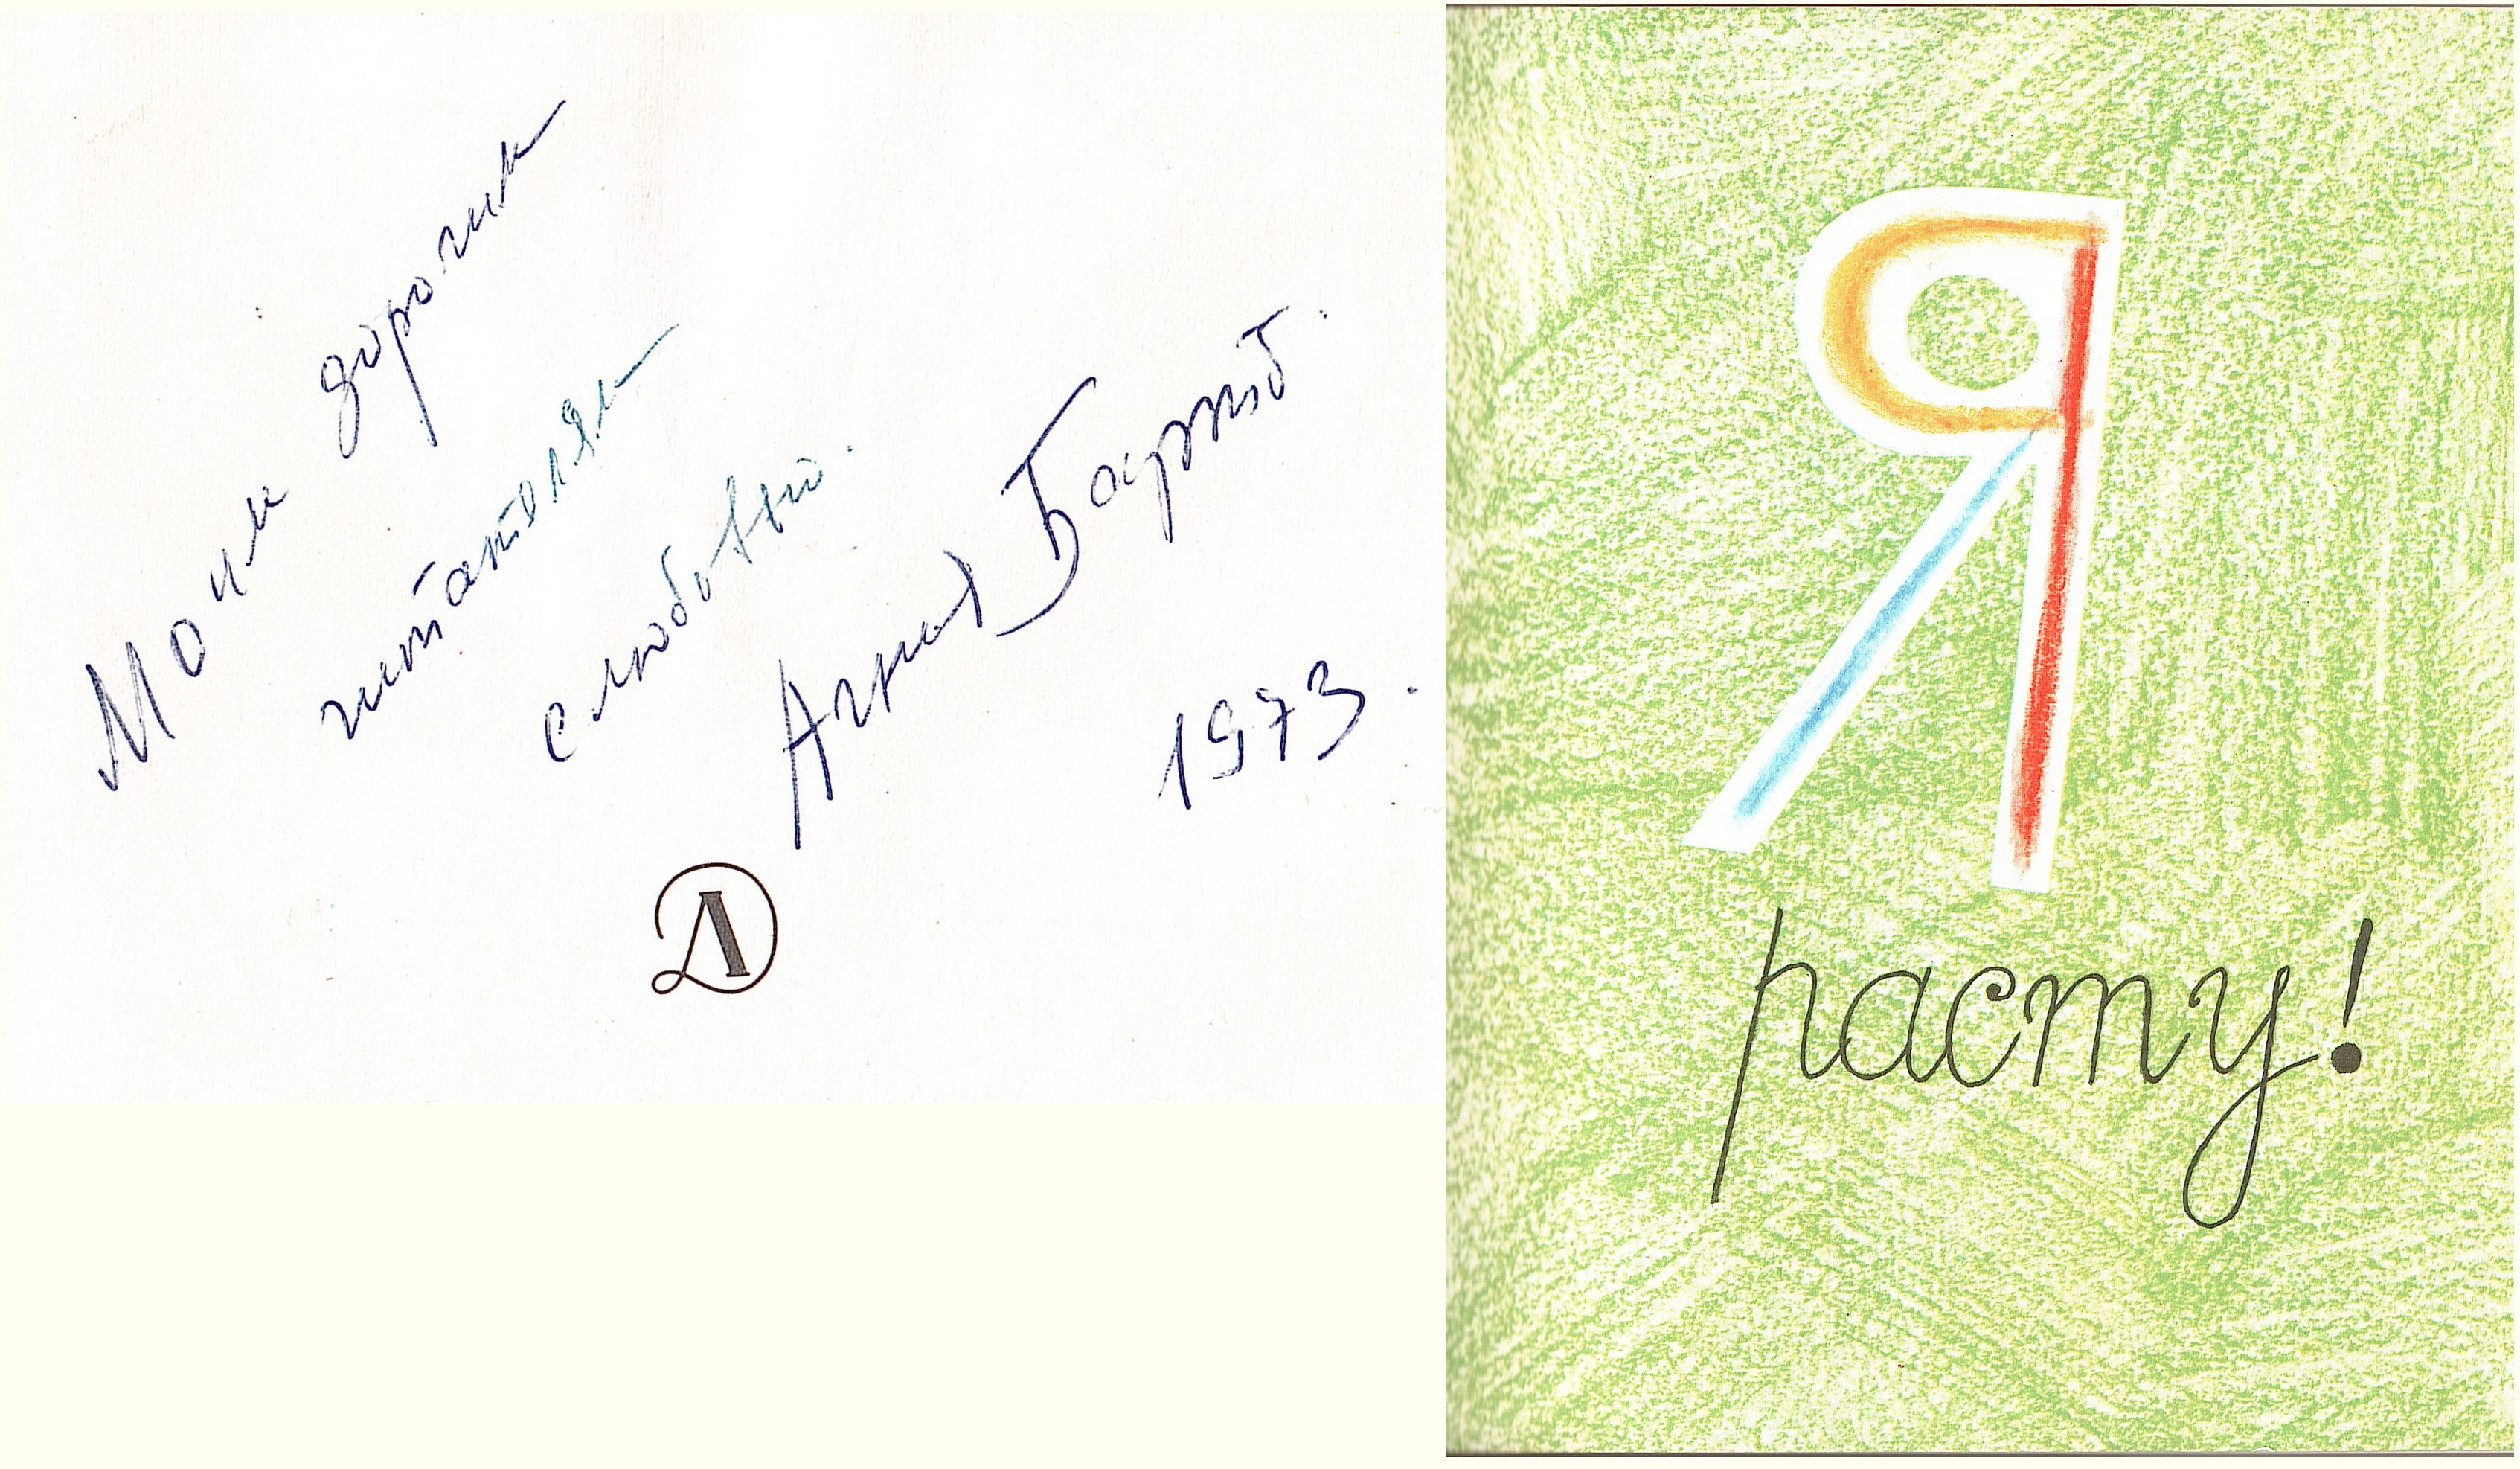 Моим дорогим
читателям
с любовью.
Агния Барто.
1973.
ДЛ
Я
расту!